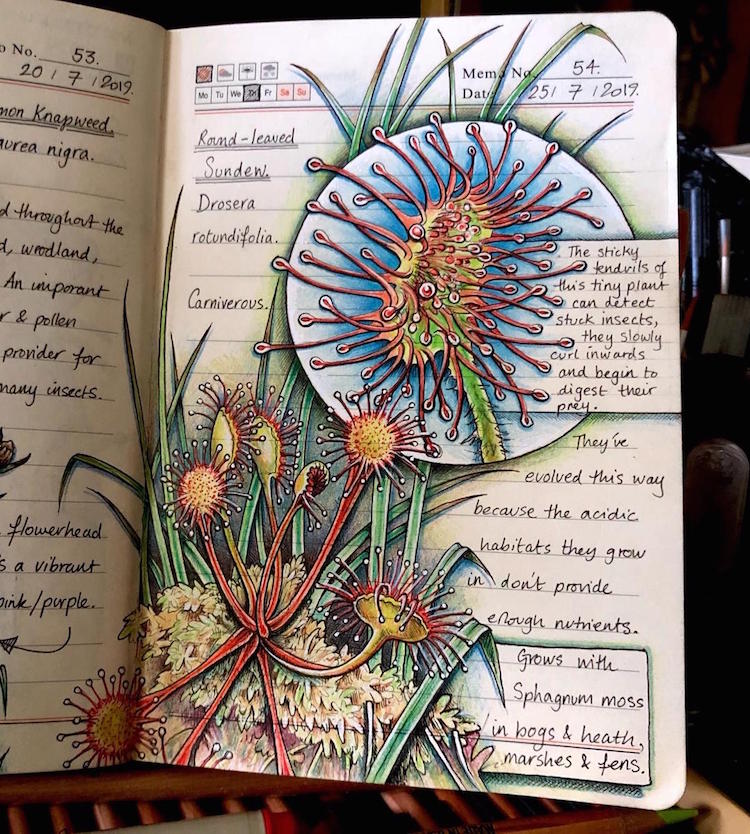 No. 53.
20 / 7 / 2019.
mon Knapweed.
aurea nigra.
d throughout the
d, woodland,
An imporant
r & pollen
provider for
many insects.
flowerhead
s a vibrant
pink/purple.
Memo No. 54.
Mo Tu We Th Fr Sa Su
Date 25 / 7 / 2019.
Round-leaved
Sundew.
Drosera
rotundifolia.
Carniverous.
The sticky
tendrils of
this tiny plant
can detect
stuck insects,
they slowly
curl inwards
and begin to
digest their
prey.
They've
evolved this way
because the acidic
habitats they grow
in don't provide
enough nutrients.
Grows with
Sphagnum moss
in bogs & heath,
marshes & fens.